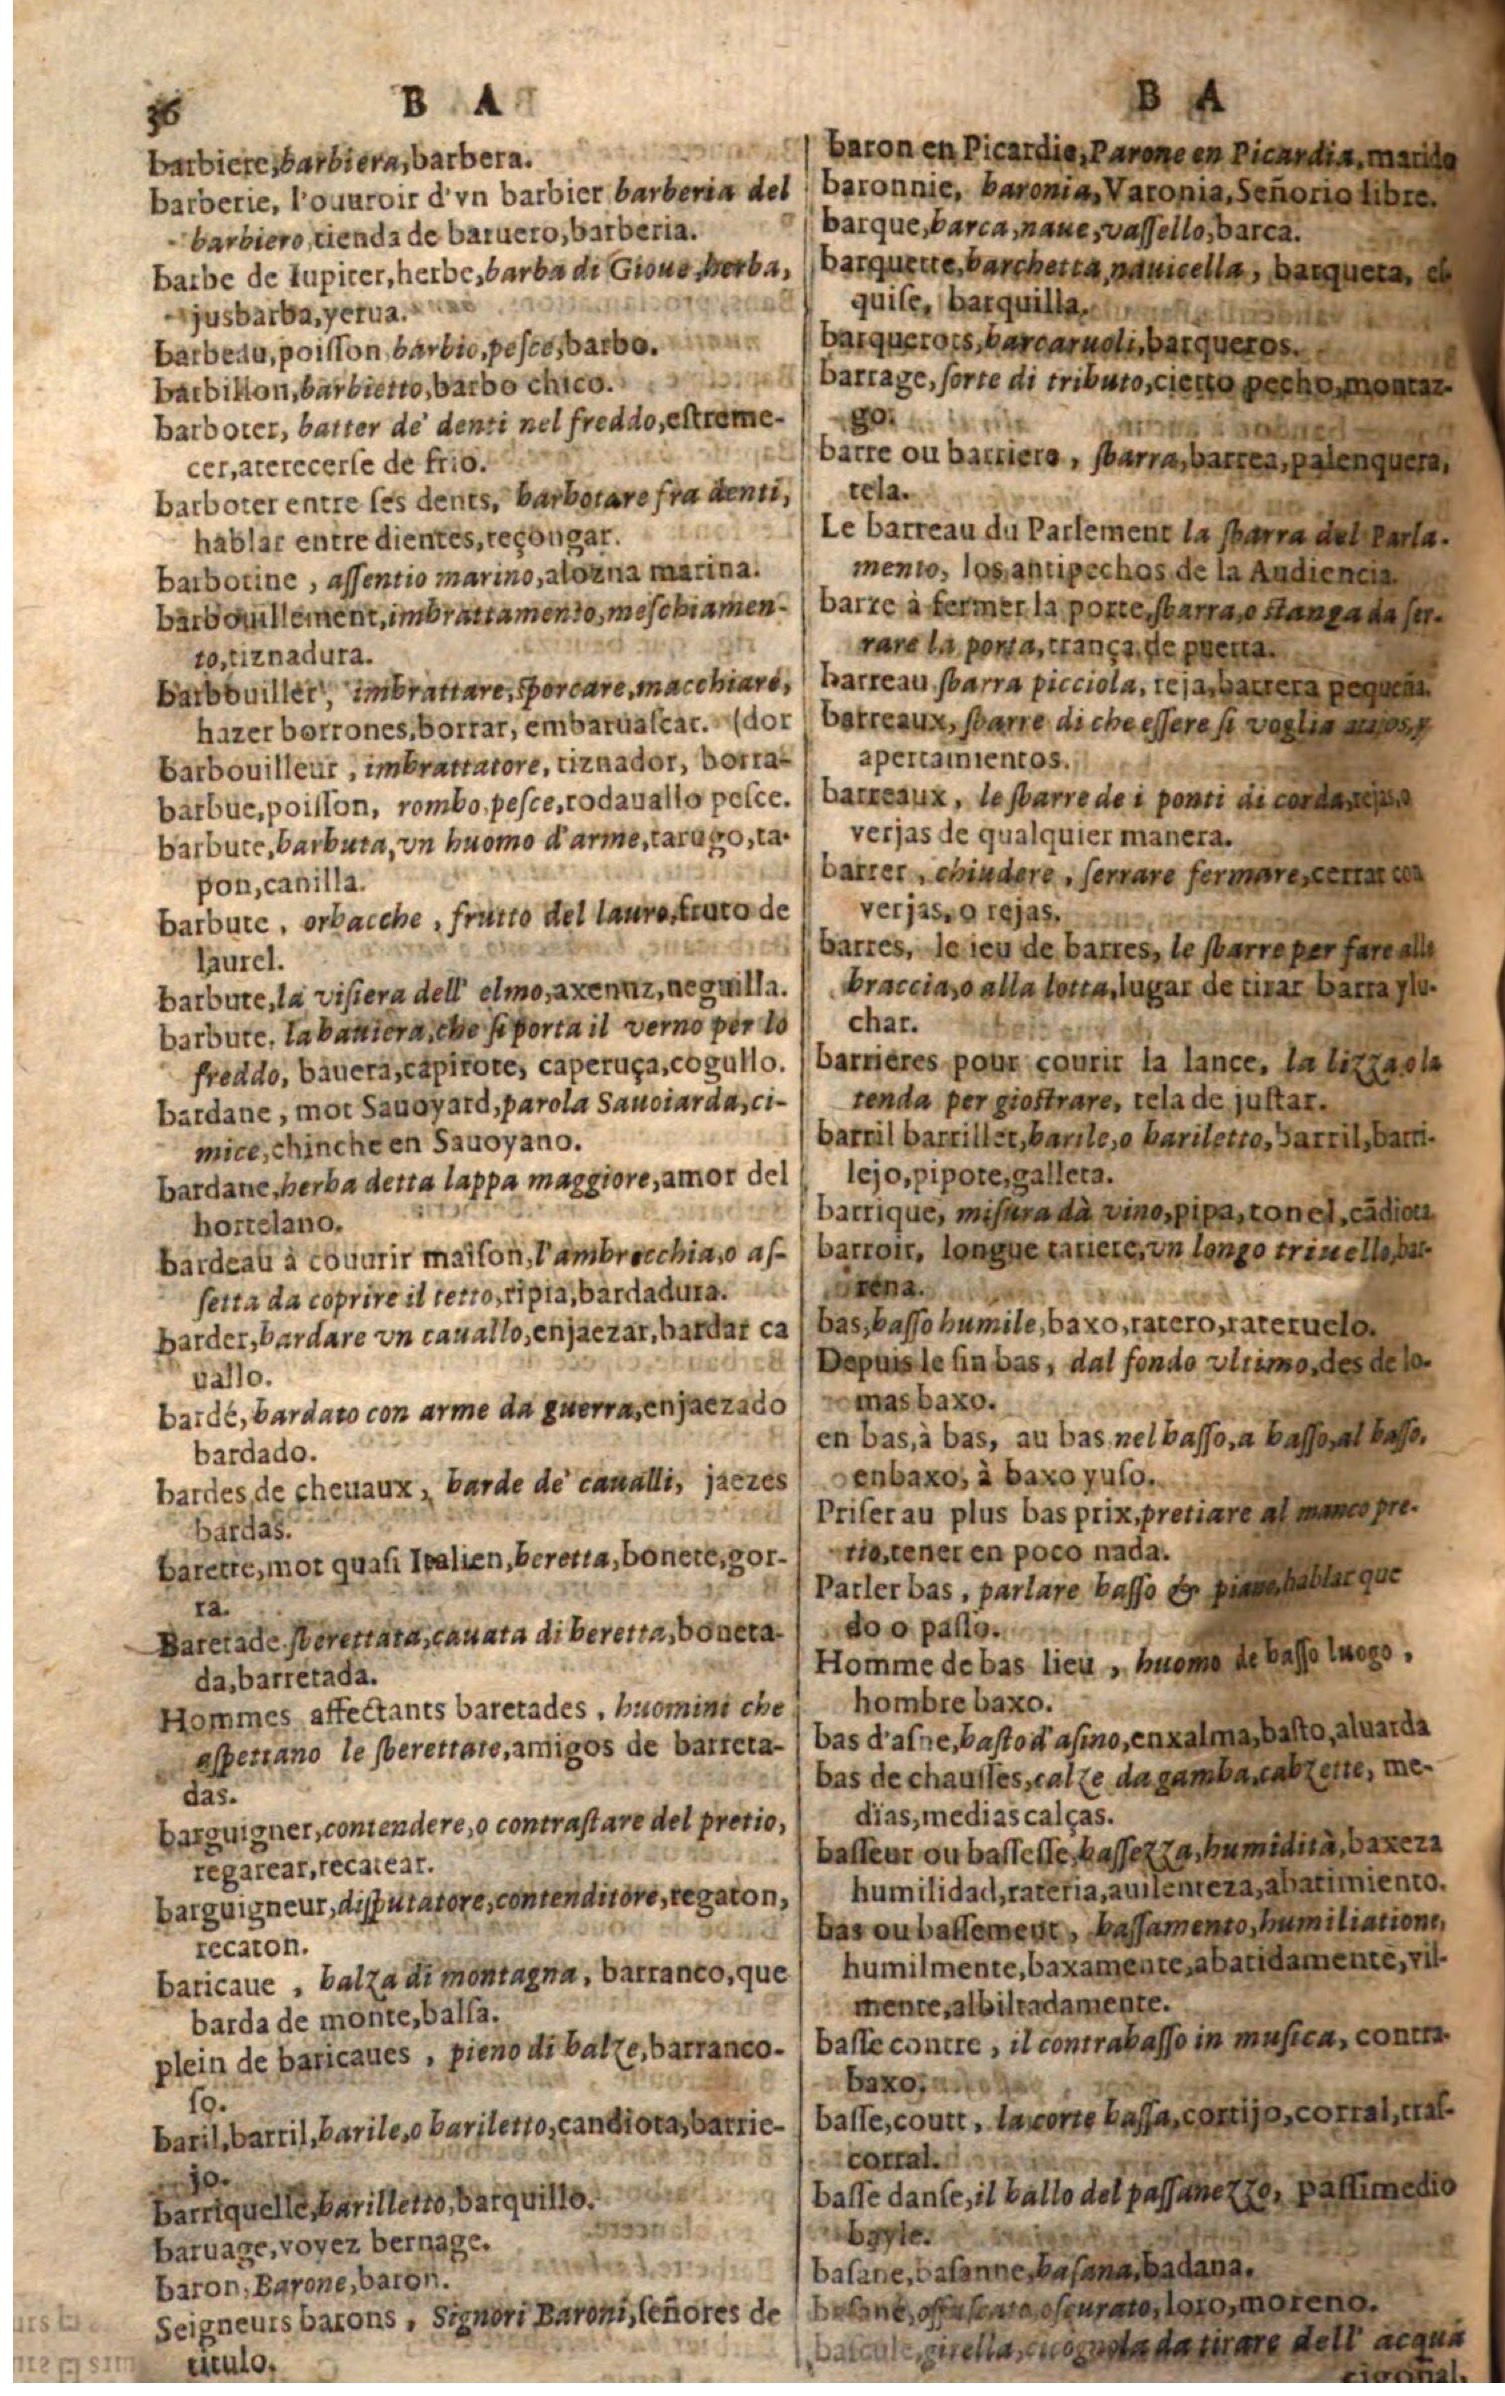 36
B A
barbiere, barbiera, barbera.
barberie, l'ouuroir d'vn barbier barberia del
barbiero, tienda de baruero, barberia.
barbe de Iupiter, herbe, barba di Gioue herba,
jusbarba, yerua.
barbeau, poiſſon barbio, peſce, barbo.
barbillon, barbietto, barbo chico.
barboter, batter de' denti nel freddo, eſtreme-
cer, aterecerſe de frio.
barboter entre ſes dents, barbotare fra denti,
hablar entre dientes, reçongar.
barbotine, aſſentio marino, alozna marina.
barbouillement, imbrattamento, meſchiamen-
to, tiznadura.
barbouiller, imbrattare, ſporcare, macchiare,
hazer borrones, borrar, embaruaſcar. (dor
barbouilleur, imbrattatore, tiznador, borra-
barbue, poiſſon, rombo, peſce, rodauallo peſce.
barbute, barbuta, vn huomo d'arme, tarugo, ta-
pon, canilla.
barbute, orbacche, frutto del lauro, fruto de
laurel.
barbute, la viſiera dell' elmo, axenuz, neguilla.
barbute, la bauiera, che ſi porta il verno per lo
freddo, bauera, capirote, caperuça, cogullo.
bardane, mot Sauoyard, parola Sauoiarda, ci-
mice, chinche en Sauoyano.
bardane, herba detta lappa maggiore, amor del
hortelano.
bardeau à couurir maiſon, l'ambrecchia, o aſ-
ſetta da coprire il tetto, ripia, bardadura.
barder, bardare vn cauallo, enjaezar, bardar ca
uallo.
bardé, bardato con arme da guerra, enjaezado
bardado.
bardes de cheuaux, barde de' caualli, jaezes
bardas.
barette, mot quaſi Italien, beretta, bonete, gor-
ra.
Baretade ſberettata, cauata di beretta, boneta-
da, barretada.
Hommes affectants baretades, huomini che
aſpettano le ſberettate, amigos de barreta-
das.
barguigner, contendere, o contraſtare del pretio,
regarear, recatear.
barguigneur, diſputatore, contenditore, regaton,
recaton.
baricaue, balza di montagna, barranco, que
barda de monte, balſa.
plein de baricaues, pieno di balze, barranco-
ſo.
baril, barril, barile, o bariletto, candiota, barrie-
jo.
barriquelle, barilletto, barquillo.
baruage, voyez bernage.
baron, Barone, baron.
Seigneurs barons, Signori Baroni, ſeñores de
titulo.
B A
baron en Picardie, Parone en Picardia, marido
baronnie, baronia, Varonia, Señorio libre.
barque, barca, naue, vaſſello, barca.
barquette, barchetta, nauicella, barqueta, eſ-
quife, barquilla.
barquerots, barcaruoli, barqueros.
barrage, ſorte di tributo, cierto pecho, montaz-
go.
barre ou barriere, ſbarra, barrea, palenquera,
tela.
Le barreau du Parlement la ſbarra del Parla-
mento, los antipechos de la Audiencia.
barre à fermer la porte, ſbarra, o ſtanga da ſer-
rare la porta, trança de puerta.
barreau ſbarra picciola, reja, barrera pequeña.
barreaux, ſbarre di che eſſere ſi voglia
apertamientos.
barreaux, le ſbarre de i ponti di corda, rejas, o
verjas de qualquier manera.
barrer, chiudere, ſerrare fermare, cerrar con
verjas, o rejas.
barres, le ieu de barres, le ſbarre per fare alle
braccia, o alla lotta, lugar de tirar barra y lu-
char.
barrieres pour courir la lance, la lizza, o la
tenda per gioſtrare, tela de juſtar.
barril barrillet, barile, o bariletto, barril, barri-
lejo, pipote, galleta.
barrique, miſura dà vino, pipa, tonel, cādiota
barroir, longue tariere, vn longo triuello, bar-
rena.
bas, baſſo humile, baxo, ratero, rateruelo.
Depuis le fin bas, dal fondo vltimo, des de lo-
mas baxo.
en bas, à bas, au bas nel baſſo, a baſſo, al baſſo,
enbaxo, à baxo yuſo.
Priſer au plus bas prix, pretiare al manco pre-
tio, tener en poco nada.
Parler bas, parlare baſſo & piano, hablar que
do o paſſo.
Homme de bas lieu, huomo de baſſo luogo,
hombre baxo.
bas d'aſne, baſto d'aſino, enxalma, baſto, aluarda
bas de chauſſes, calze da gamba, calzette, me-
dias, medias calças.
baſſeur ou baſſeſſe, baſſezza, humidità, baxeza
humilidad, rateria, auilenteza, abatimiento.
bas ou baſſement, baſſamento, humiliatione,
humilmente, baxamente, abatidamente, vil-
mente, albiltadamente.
baſſe contre, il contrabaſſo in muſica, contra-
baxo.
baſſe, coutt, la corte baſſa, cortijo, corral, traſ-
corral.
baſſe danſe, il ballo del paſſanezzo, paſſimedio
bayle.
baſane, baſanne, baſana, badana.
baſané, offuſcato, oſcurato, loro, moreno.
baſcule, girella, cicognola da tirare dell' acqua
cigoñal,